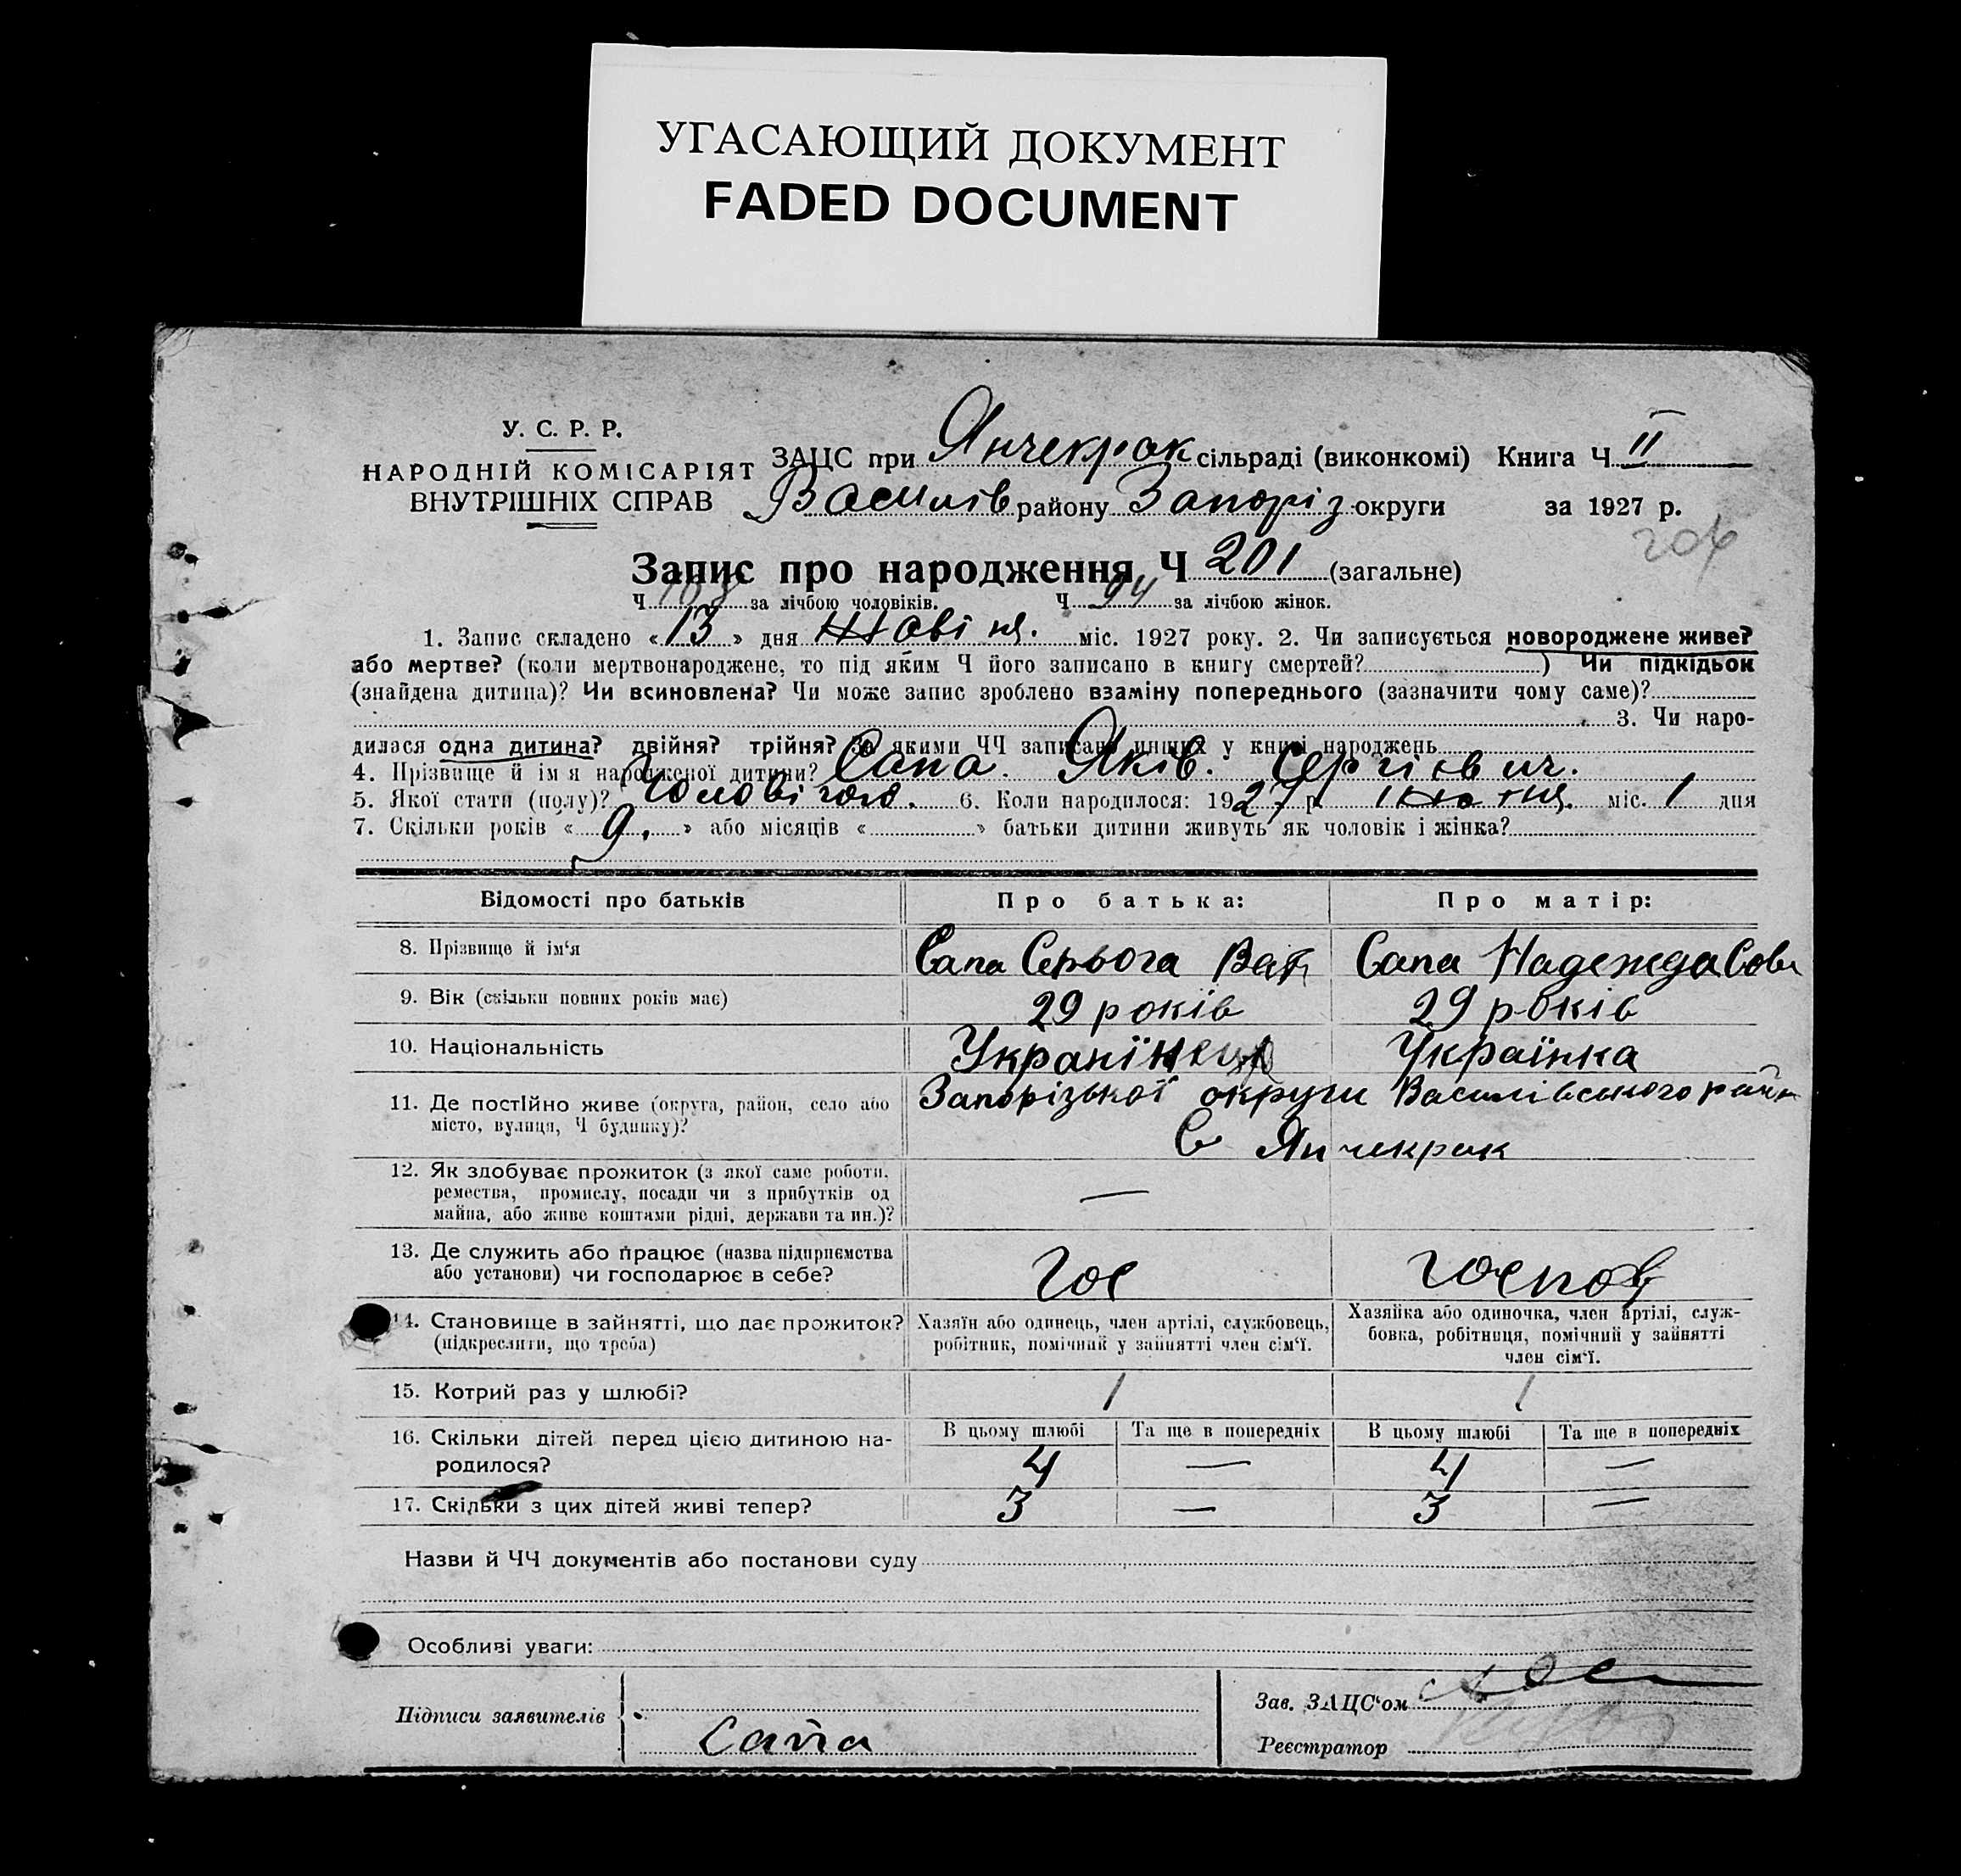 УГАСАЮЩИЙ ДОКУМЕНТ
FADED DOCUMENT
У. С. Р. Р.
НАРОДНІЙ КОМІСАРІЯТ
ВНУТРІШНІХ СПРАВ
ЗАЦС при Янчекрак сільраді (виконкомі) Книга Ч II
Василів району Запоріз округи за 1927 р.
204
Запис про народження Ч 201 (загальне)
Ч. за лічбою чоловіків. Ч. 94 за лічбою жінок.
1. Запис складено «13» дня Жовтня. міс. 1927 року. 2. Чи записується новороджене живе?
або мертве? (коли мертвонароджене, то під яким Ч його записано в книгу смертей? ) Чи підкідьок
(знайдена дитина)? Чи всиновлена? Чи може запис зроблено взаміну попереднього (зазначити чому саме)?
3. Чи наро-
дилася одна дитина? двійня? трійня? За якими ЧЧ записано инших у книзі народжень
4. Прізвище й ім'я народженої дитини? Сапа. Яків. Сергієвич.
5. Якої стати (полу)? Чоловічого. 6. Коли народилося: 1927 р. міс. 1 дня
7. Скільки років «9.» або місяців « » батьки дитини живуть як чоловік і жінка?
Відомості про батьків Про батька: Про матір:
8. Прізвище й ім'я Сапа Серьога Сапа Надежда
9. Вік (скільки повних років має) 29 років 29 років
10. Національність Українка
11. Де постійно живе (округа, район, село або Запорізької округи Василівського район
місто, вулиця, Ч будинку)? С Янчекрак
12. Як здобуває прожиток (з якої саме роботи, —
ремества, промислу, посади чи з прибутків од
майна, або живе коштами рідні, держави та ин.)?
13. Де служить або працює (назва підприємства Гос
або установи) чи господарює в себе?
14. Становище в зайнятті, що дає прожиток? Хазяїн або одинець, член артілі, службовець, Хазяйка або одиночка, член артілі, служ-
(підкреслити, що треба) робітник, помічний у зайнятті член сім'ї. бовка, робітниця, помічний у зайнятті
член сім'ї.
15. Котрий раз у шлюбі? 1 1
16. Скільки дітей перед цією дитиною на- В цьому шлюбі Та ще в попередніх В цьому шлюбі Та ще в попередніх
родилося? 4 — 4 —
17. Скільки з цих дітей живі тепер? 3 — 3 —
Назви й ЧЧ документів або постанови суду
Особливі уваги:
Підписи заявителів Сапа
Зав. ЗАЦС'ом
Реєстратор